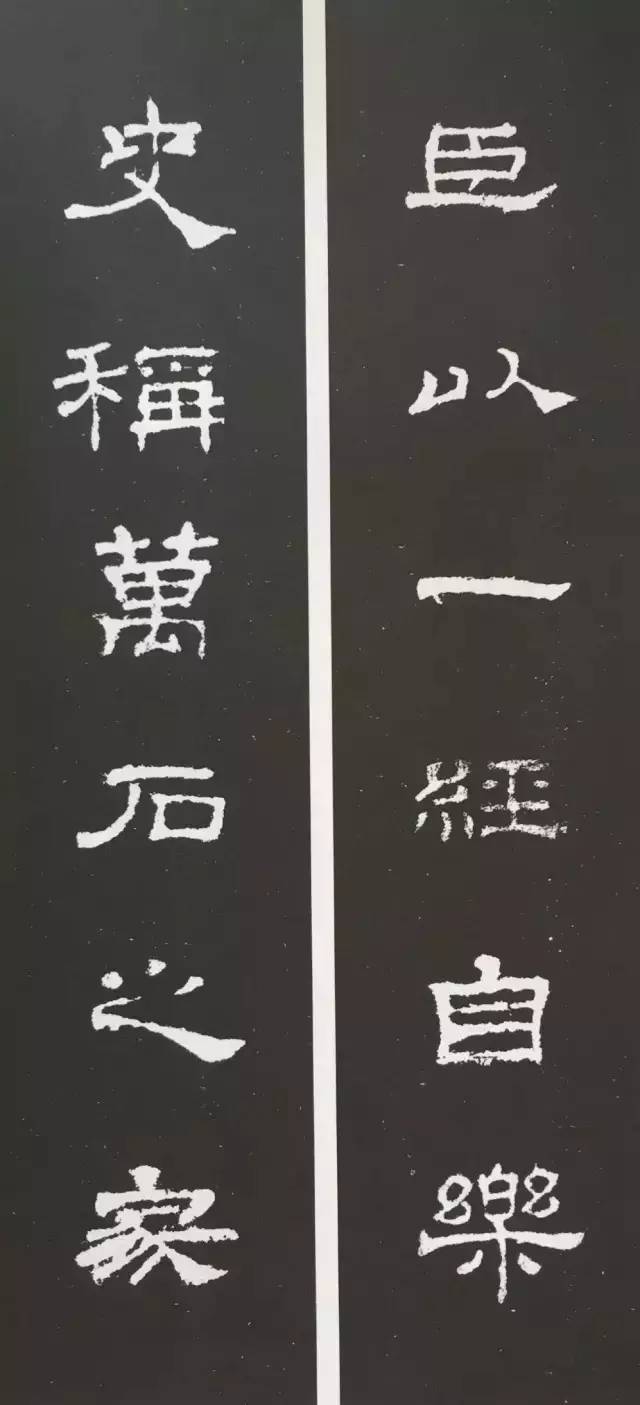 臣以一經自樂
史稱萬石之家